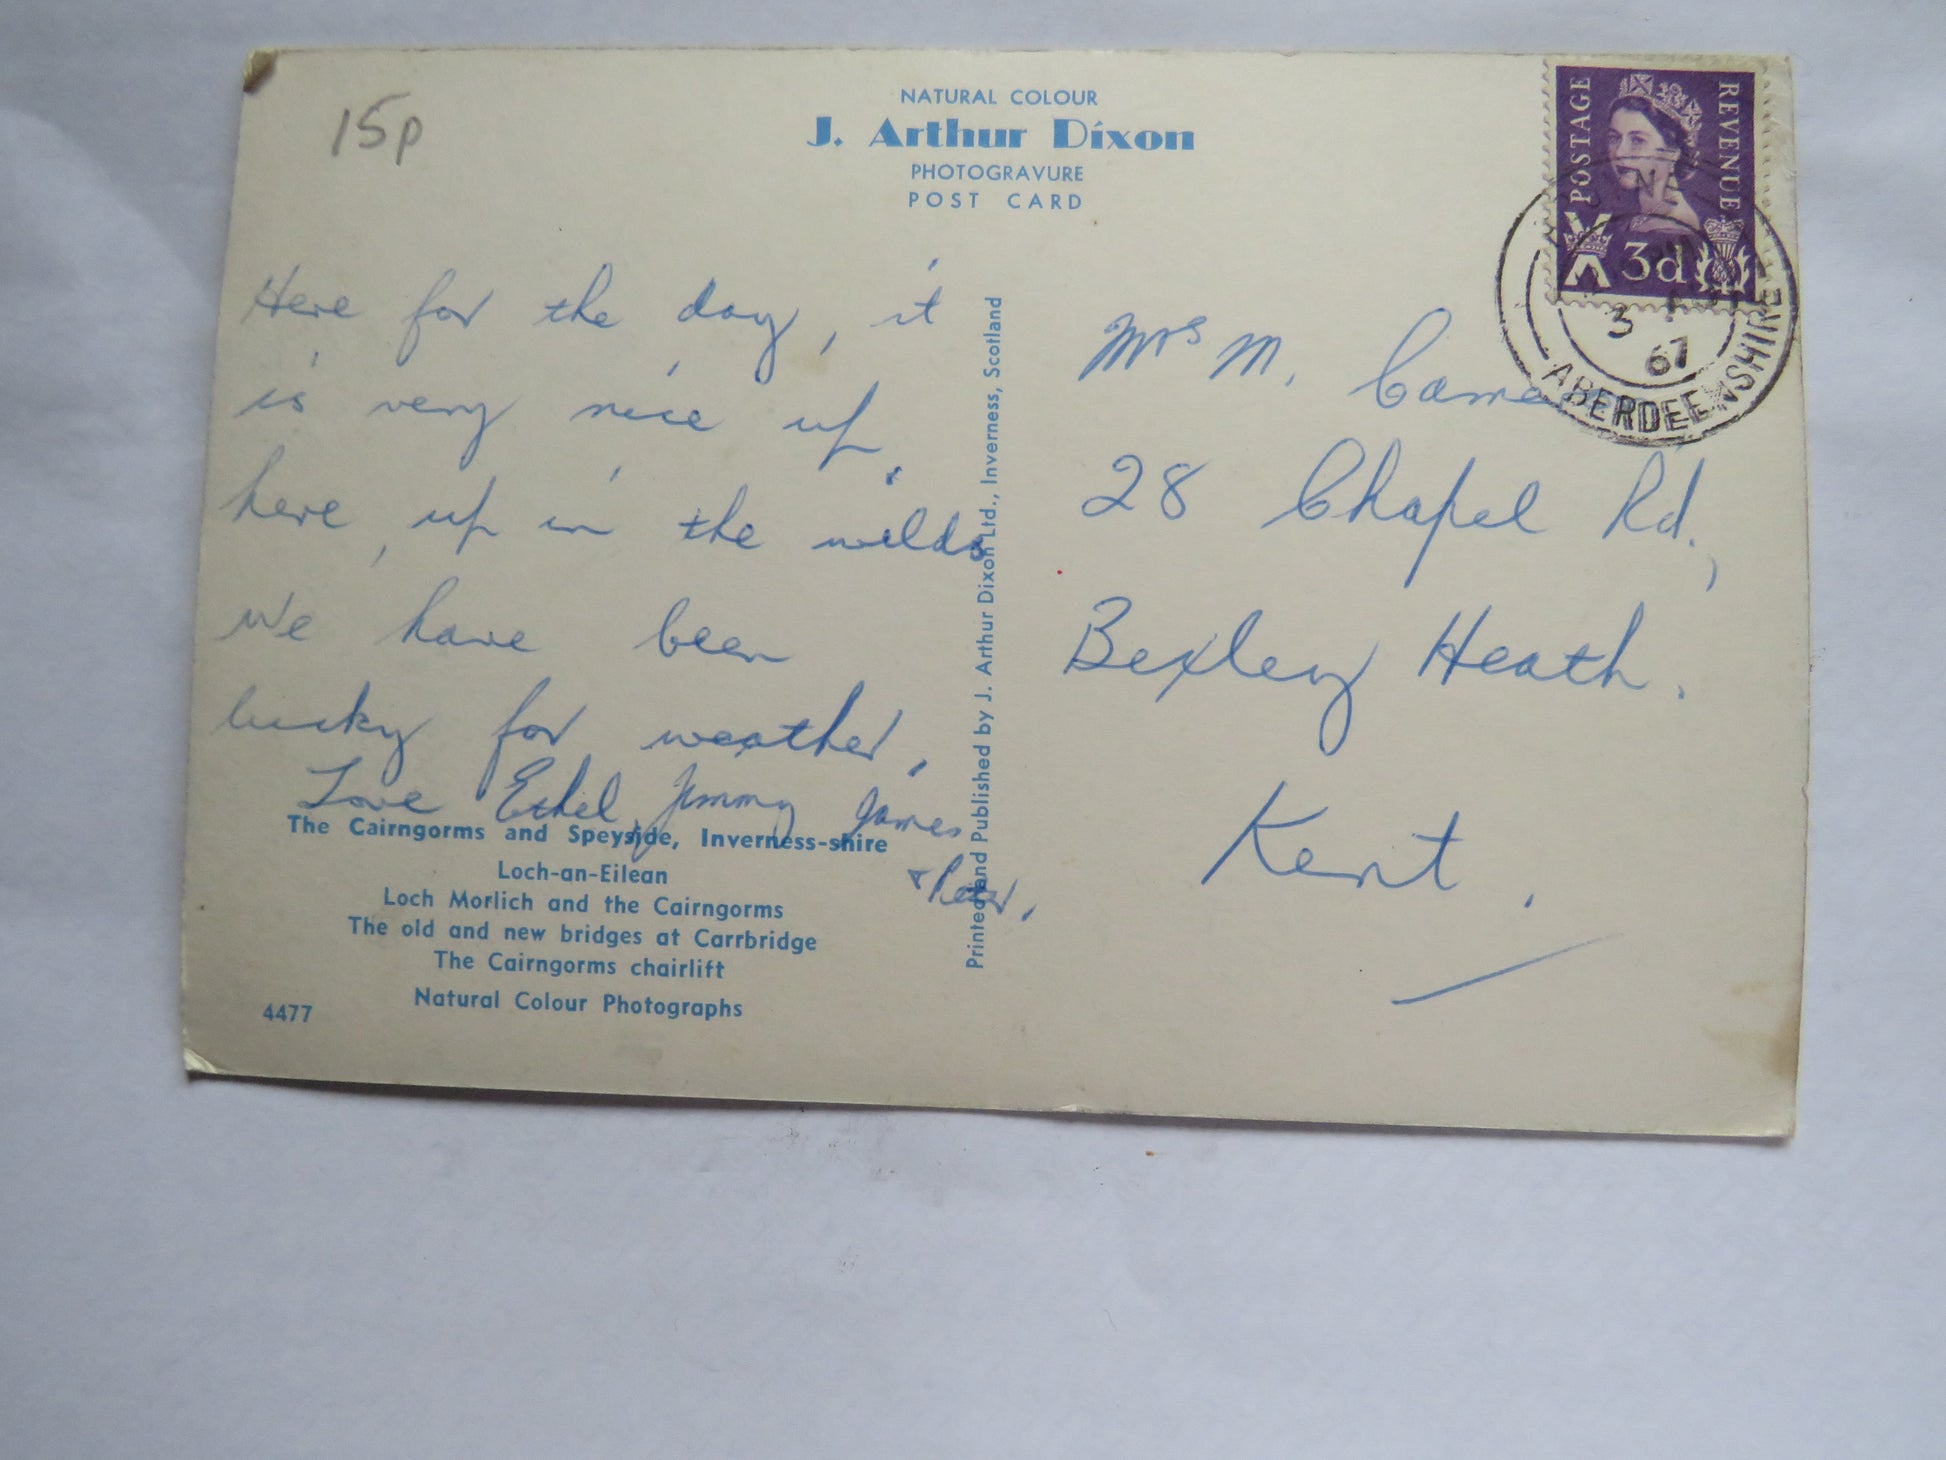 15p
NATURAL COLOUR
J. Arthur Dixon
PHOTOGRAVURE
POST CARD
POSTAGE
REVENUE
3d
3
67
ABERDEENSHIRE
Here for the day, it
is very nice up
here, up in the wilds
We have been
lucky for weather,
Love Ethel, Jimmy James
& Peter.
The Cairngorms and Speyside, Inverness-shire
Loch-an-Eilean
Loch Morlich and the Cairngorms
The old and new bridges at Carrbridge
The Cairngorms chairlift
Natural Colour Photographs
4477
Printed and Published by J. Arthur Dixon Ltd., Inverness, Scotland
Mrs M.
28 Chapel Rd.,
Bexley Heath.
Kent.